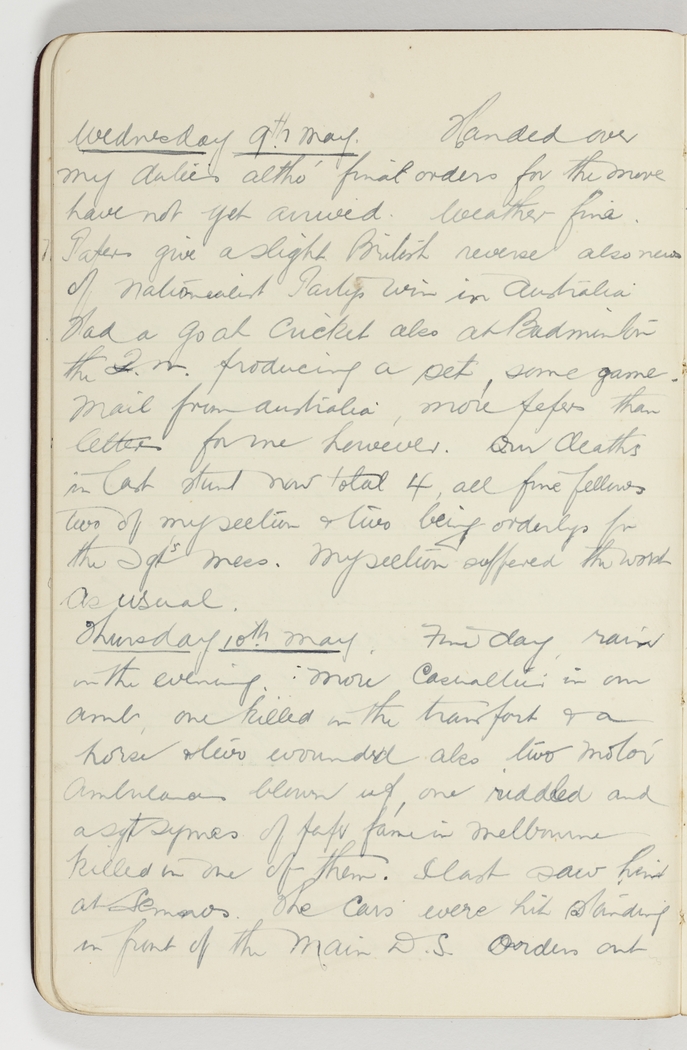 Wednesday 9th May. Handed over
my duties altho' final orders for the move
have not yet arrived. Weather fine.
Papers give a slight British reverse also news
of Nationalist Partys win in Australia
Had a go at Cricket also at Badminton
the Q.M. producing a set, some game.
Mail from Australia, more papers than
letters for me however. Our deaths
in last stunt now total 4, all fine fellows
two of my section & two being orderlys for
the Sgt's mess. My section suffered the worst
as usual.
Thursday 10th May. Fine day, rain
in the evening. More Casualties in our
amb, one killed in the transport & a
horse & two wounded also two motor
Ambulances blown up, one riddled and
a Sgt Symes of fame in Melbourne
killed in one of them. I last saw him
at Lemnos. The Cars were hit standing
in front of the Main D.S. Orders out